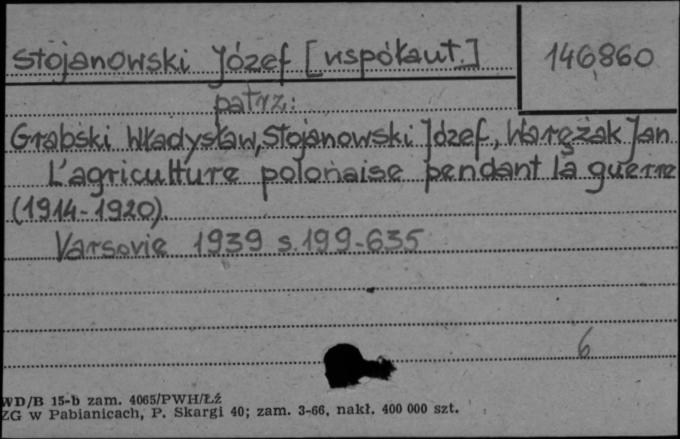 Stojanowski Józef [współaut.]
146860
patrz:
Grabski Władysław, Stojanowski Józef, Warężak Jan
L'agriculture polonaise pendant la guerre
(1914-1920)
Varsovie 1939 s. 199-635
6
WD/B 15-b zam. 4065/PWH/Łź
ZG w Pabianicach, P. Skargi 40; zam. 3-66, nakł. 400 000 szt.